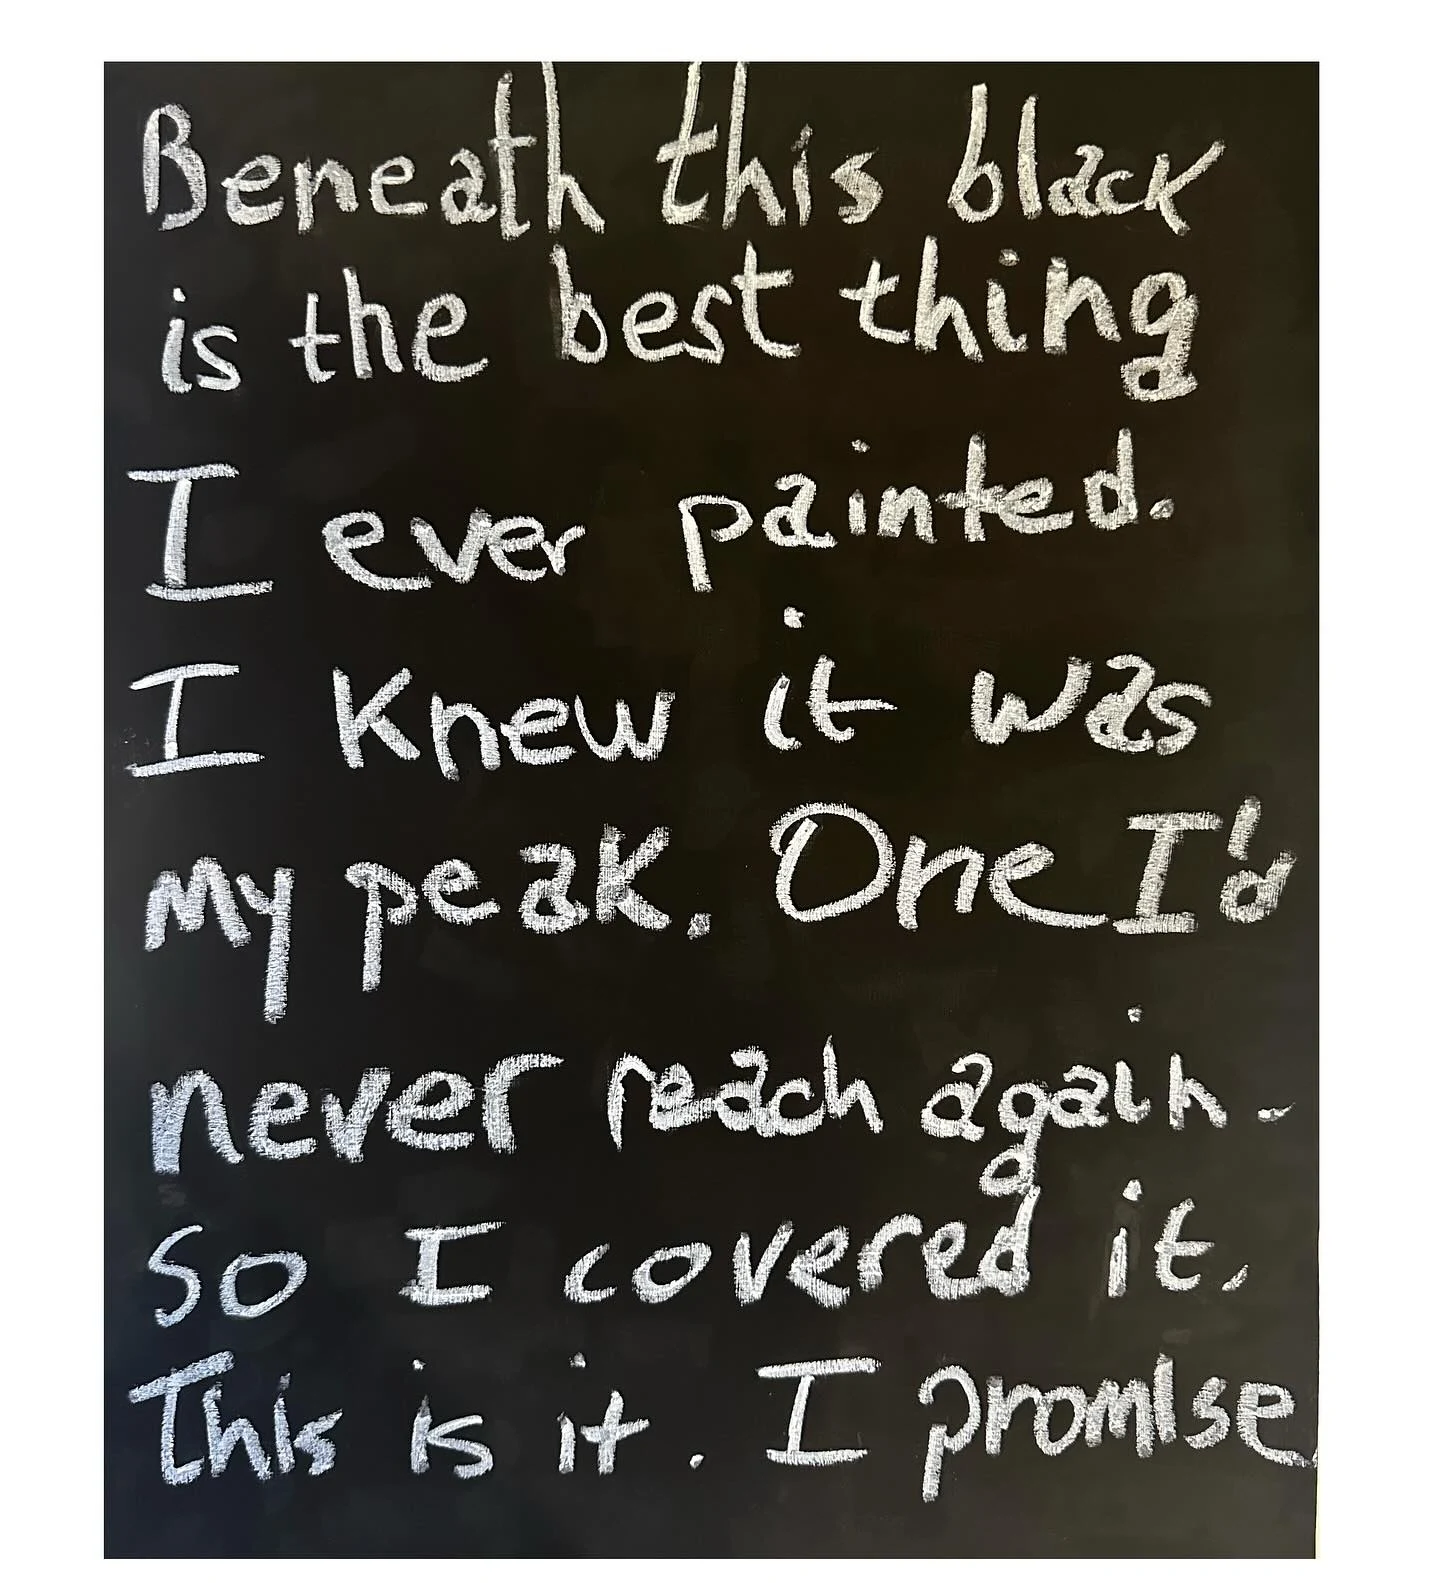 Beneath this black
is the best thing
I ever painted.
I knew it was
my peak. One I'd
never reach again.
So I covered it.
This is it. I promise.